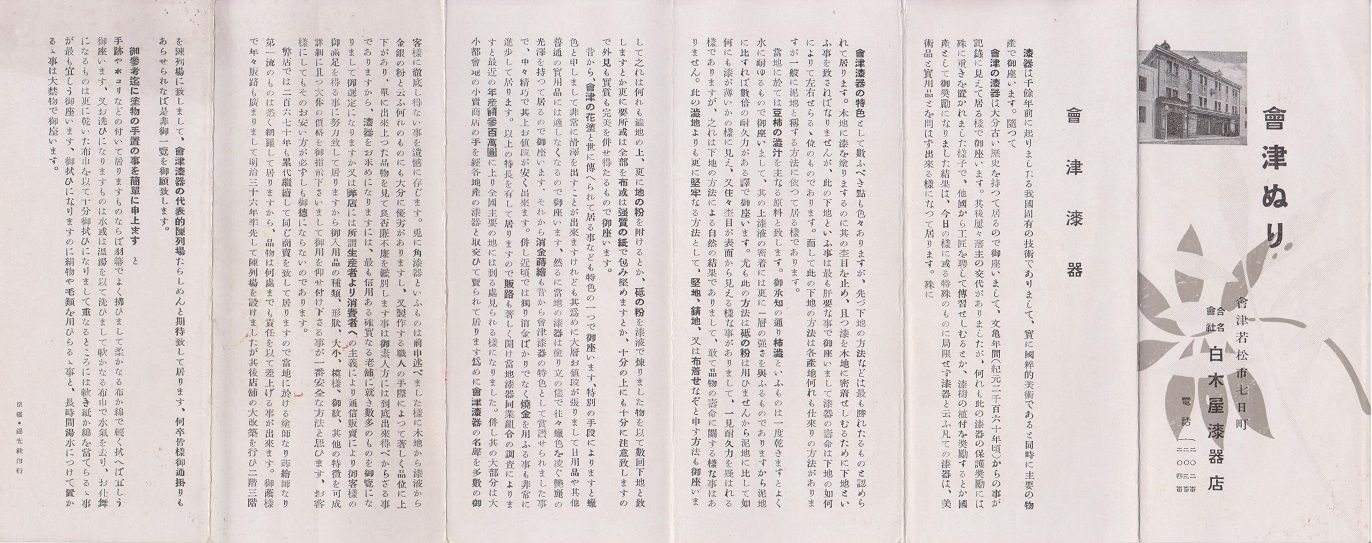 會津ぬり
會津若松市七日町
合名會社 白木屋漆器店
電話
會津漆器
漆器は千餘年前に起りましたる我國固有の技術でありまして、實に國粹的美術であると同時に主要の物
産で御座います。隨つて
會津の漆器は大分古い歷史を持つて居るので御座いまして、文亀年間(紀元二千百六十年頃)からの事が
記錄に見えて居る樣で御座います。其後屢々藩主の交代がありましたが、何れも此の漆器の保護奬勵には
殊に重きを置かれました樣子で、他國から工匠を聘して傳習せしむるとか、漆樹の植付を奬勵するとか國
産として御奬勵になりました結果は、今日の樣に或る特殊のものに局限せず漆器と云ふ凡ての漆器は、美
術品と實用品とを問はず出來る樣になつて居ります。殊に
會津漆器の特色として數ふべき點も色々ありますが、先づ下地の方法などは最も勝れたるものと認めら
れて居ります。木地に漆を塗りまするのに其の杢目を止め、且つ漆を木地に密着せしむるために下地とい
ふ事を致さねばなりませんが、此の下地といふ事は最も肝要な事で御座いまして漆器の壽命は下地の如何
によりて左右せらるゝ位のものであります。而して此の下地の方法は各産地何れも仕來りの方法がありま
すが一般に泥地と稱する方法に依つて居る樣であります。
當地に於ては豆柿の澁汁を主なる原料と致して居ります。御承知の通り柿澁といふものは一度乾きますとよく
水に耐ゆるもので御座いまして、其の上漆液の密着には更に一層の强さを與ふるものでありますから泥地
に比すれば數倍の耐久力がある譯で御座います。尤も此の方法は砥の粉は用ひませんから泥地に比して如
何にも漆が薄いかの樣に見え、又往々杢目が表面から見える樣な事がありまして、一見耐久力を疑はれる
樣でありますが、之れは下地の方法による自然の結果でありまして、敢て品物の壽命に關する樣な事はあ
りません。此の澁地よりも更に堅牢なる方法として、堅地、錆地、又は布着せなぞと申す方法も御座いま
して之れは何れも澁地の上、更に地の粉を附けるとか、砥の粉を漆液で煉りました物を以て數回下地と致
しますとか更に要所或は全部を布或は强質の紙で包み堅めますとか、十分の上にも十分に注意致しますの
で外見も實質も完美を併せ得たるもので御座います。
昔から、會津の花塗と世に傳へられて居る事なども特色の一つで御座います、特別の手段によりますと蠟
色と申しまして非常に滑澤を出すことが出來ますけれども其爲めに大層お値段が張りまして日用品や其他
普通の實用品には適しなくなるので御座います。然るに當地の漆器は塗り立の儘で往々蠟色を凌ぐ艷麗の
光澤を持つて居るので御座います、それから消金蒔繪も昔から會津漆器の特色として賞讃せられました事
で、中々精巧で其上お値段が安く出來ます。併し近頃では獨り消金ばかりでなく燒金を用ふる事も非常に
進步して居ります。以上の特長を有して居りますので販路も著しく開け當地漆器同業組合の調査によりま
すと最近の年産額參百萬圓に上り全國主要の地には到る處見られる樣になりました。併し其の大部分は大
小都會地の小賣商店の手を經各地産の漆器と取交ひて賣られて居ります爲めに會津漆器の名聲を多數の御
客樣に徹底し得ない事を遺憾に存じます。兎に角漆器といふものは前申述べました樣に木地から漆液から
金銀の粉と云ふ何れのものにも大分に優劣がありますし、又製作する職人の手際によつて著しく品位に上
下があり、單に出來上つた品物を見て良否廉不廉を鑑別します事は御素人方には到底出來得べからざる事
でありますから、漆器をお求めになりますには、最も信用ある確實なる老舖に就き數多のものを御覽にな
りまして御選定になりますか又は弊店には所謂生産者より消費者への主義により通信販賣により御客樣の
御滿足を得る事に努力致して居りますから御入用品の種類、形狀、大小、模樣、御紋、其他の特徵を可成
詳細に且つ大体の價格を御指示下さいまして御用を仰せ付け下さる事が一番安全な方法と思ひます、お客
樣にしてもそのお安い方が必ずしも御德にならないのであります。
弊店では二百六七十年も累代繼續して同じ商賣を致して居りますので當地に於ける塗師なり蒔繪師なり
第一流のものは悉く網羅して居りますから、品物は何處までも責任を以て差上げる事が出來ます。御蔭樣
で年々販路も廣まりまして明治三十六年率先して陳列場を設けましたが其後店舖の大改築を行ひ二階三階
を陳列場に致しまして、會津漆器の代表的陳列場たらしめんと期待致して居ります、何卒皆樣御通掛りも
あらせられなば是非御一覽を御願致します。
御參考迄に塗物の手置の事を簡單に申上ますと
手跡やホコリなどの付いて居りますものならば羽箒でよく拂ひまして柔かなる布か綿で輕く拭へば宜しう
御座います、又お洗ひになりますものは水或は溫湯を以て洗ひまして軟かなる布巾で水氣を去り、お仕舞
になるものは更に乾いた布巾を以て十分御拭ひになりまして重なるところには軟き紙か綿を當てらるゝ事
が最も宜しう御座います、御拭ひになりますのに絹物や毛類を用ひらるゝ事と、長時間湯水につけて置か
るゝ事は大禁物で御座います。